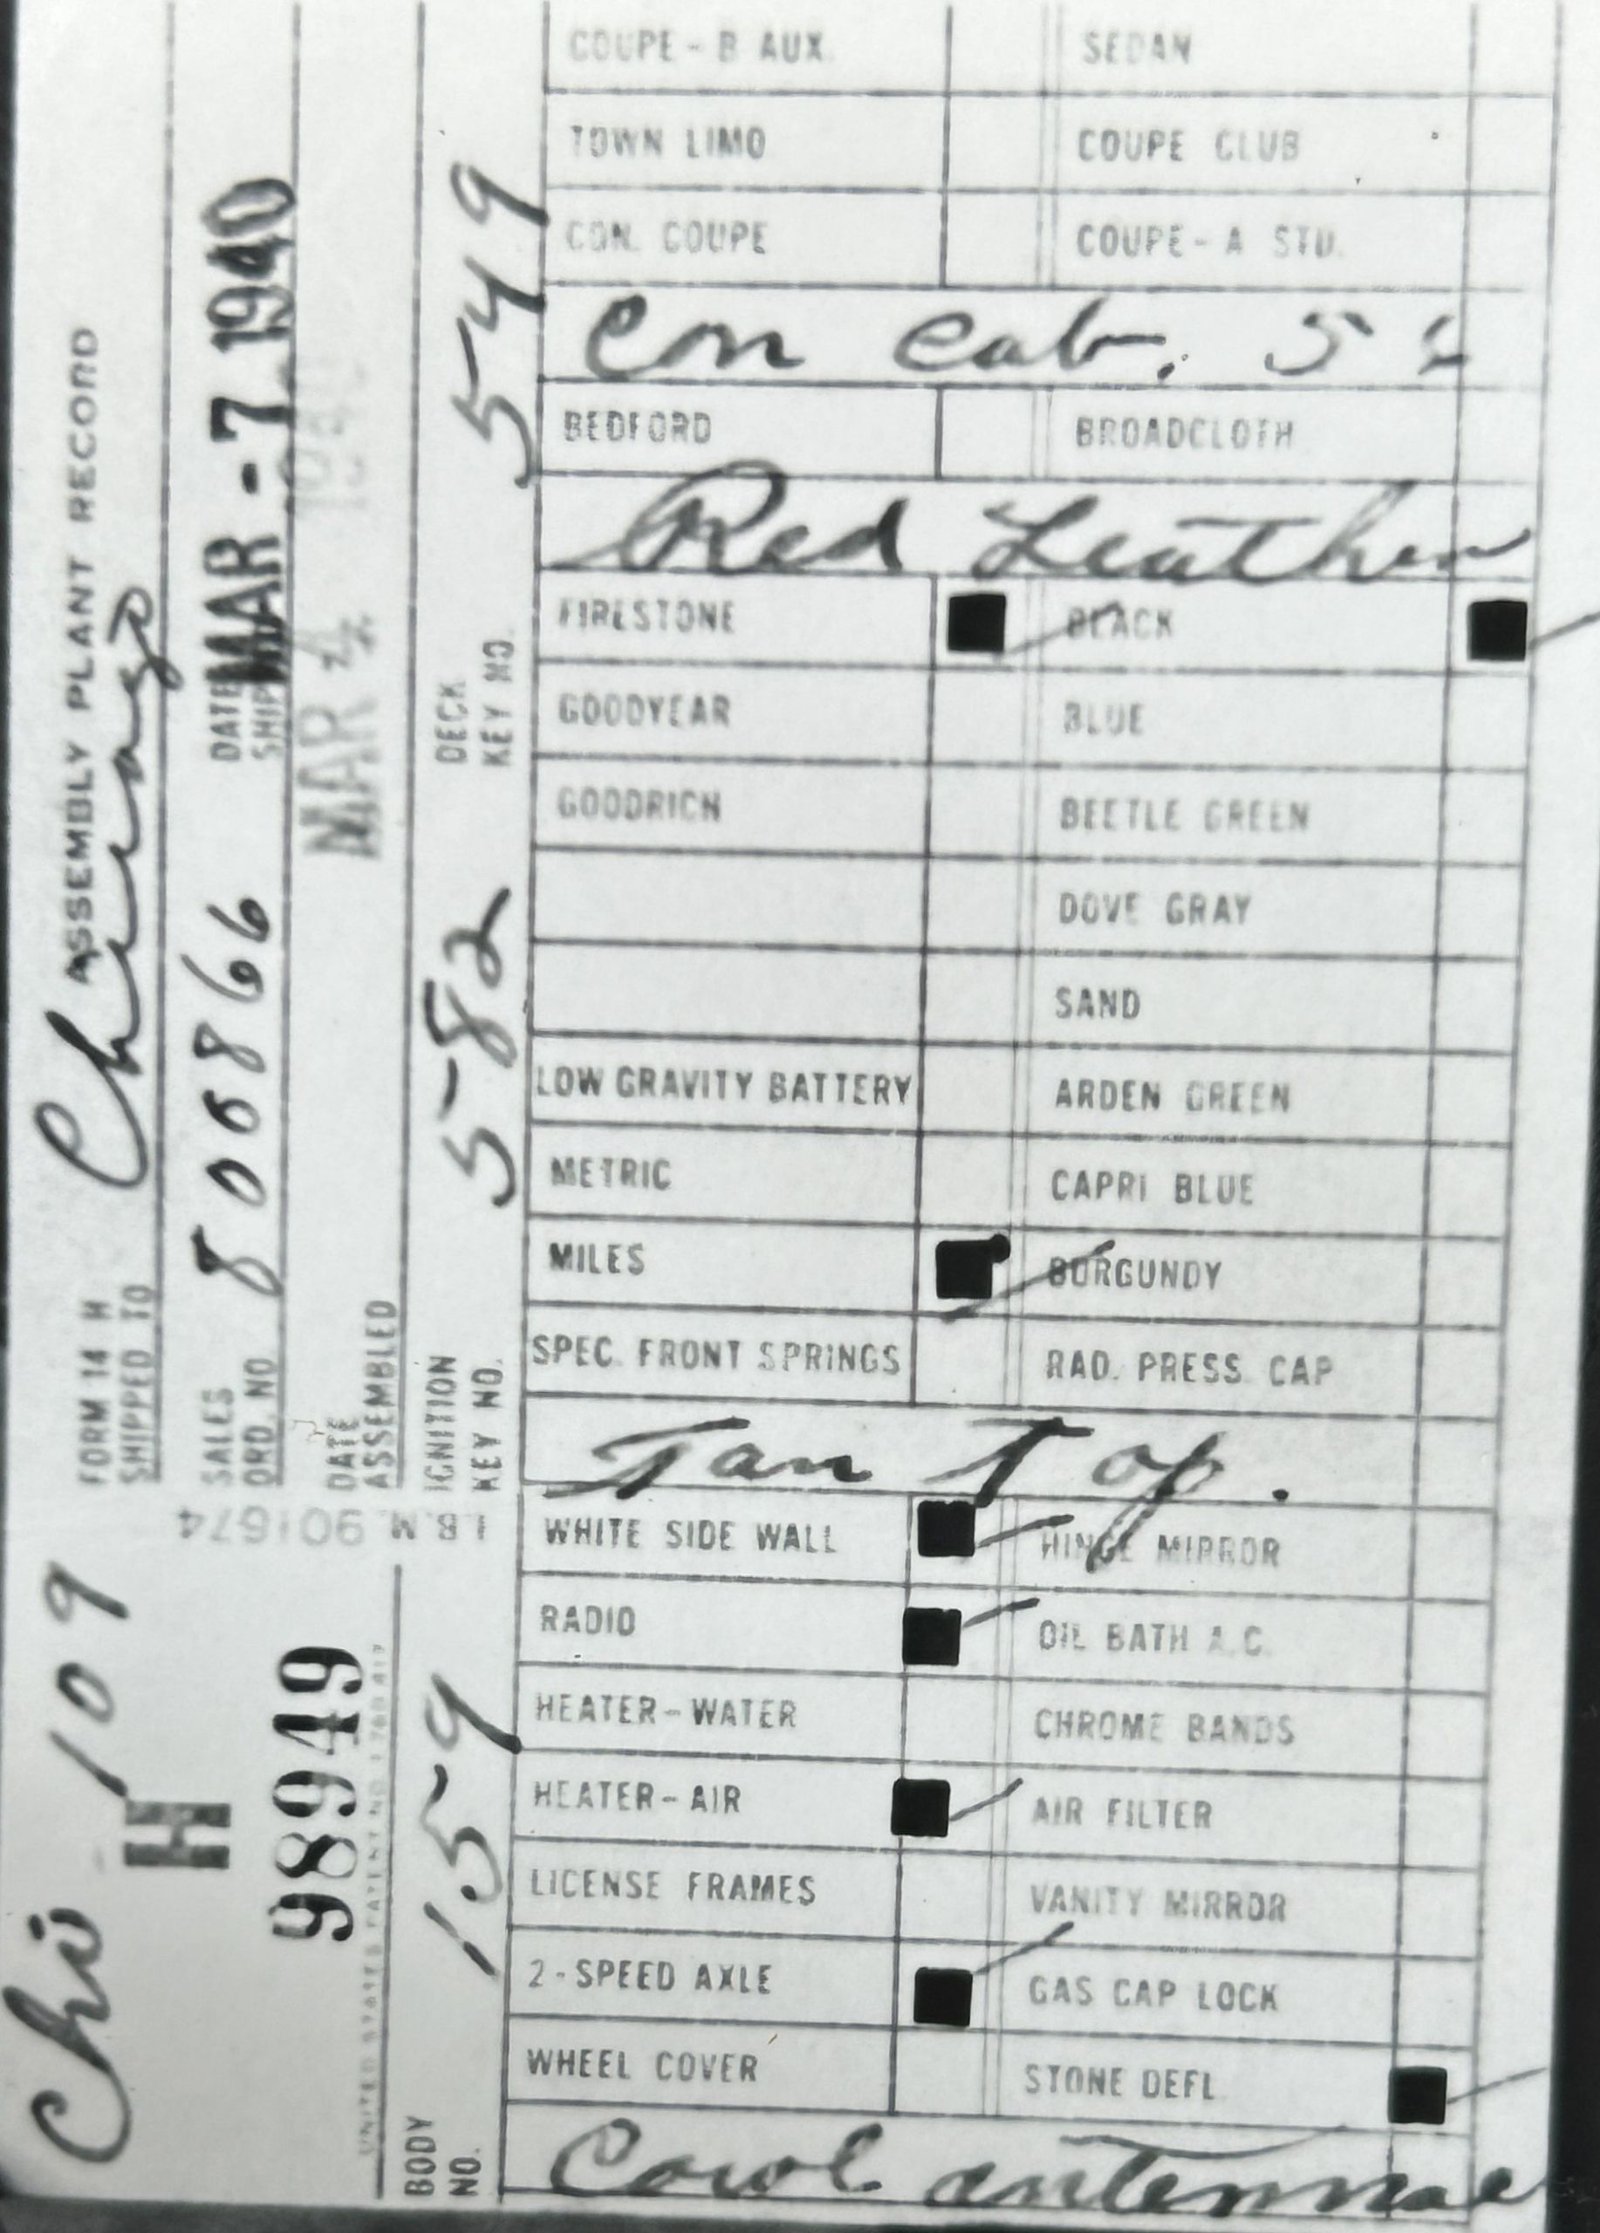 FORM 14 H
ASSEMBLY PLANT RECORD
SHIPPED TO Chicago
SALES ORD. NO. 800866
DATE SHIP MAR - 7 1940
DATE ASSEMBLED MAR 4
IGNITION KEY NO. 5-82
DECK KEY NO. 549
I.B.M. 901674
Chi 109
H
98949
UNITED STATES PATENT NO.
BODY NO. 159
COUPE - B AUX. SEDAN
TOWN LIMO COUPE CLUB
CON. COUPE COUPE - A STD.
Con Cab. 5
BEDFORD BROADCLOTH
Red Leather
FIRESTONE BLACK
GOODYEAR BLUE
GOODRICH BEETLE GREEN
DOVE GRAY
SAND
LOW GRAVITY BATTERY ARDEN GREEN
METRIC CAPRI BLUE
MILES BURGUNDY
SPEC. FRONT SPRINGS RAD. PRESS. CAP
Tan Top.
WHITE SIDE WALL HINGE MIRROR
RADIO OIL BATH A.C.
HEATER - WATER CHROME BANDS
HEATER - AIR AIR FILTER
LICENSE FRAMES VANITY MIRROR
2 - SPEED AXLE GAS CAP LOCK
WHEEL COVER STONE DEFL.
Cowl antennae